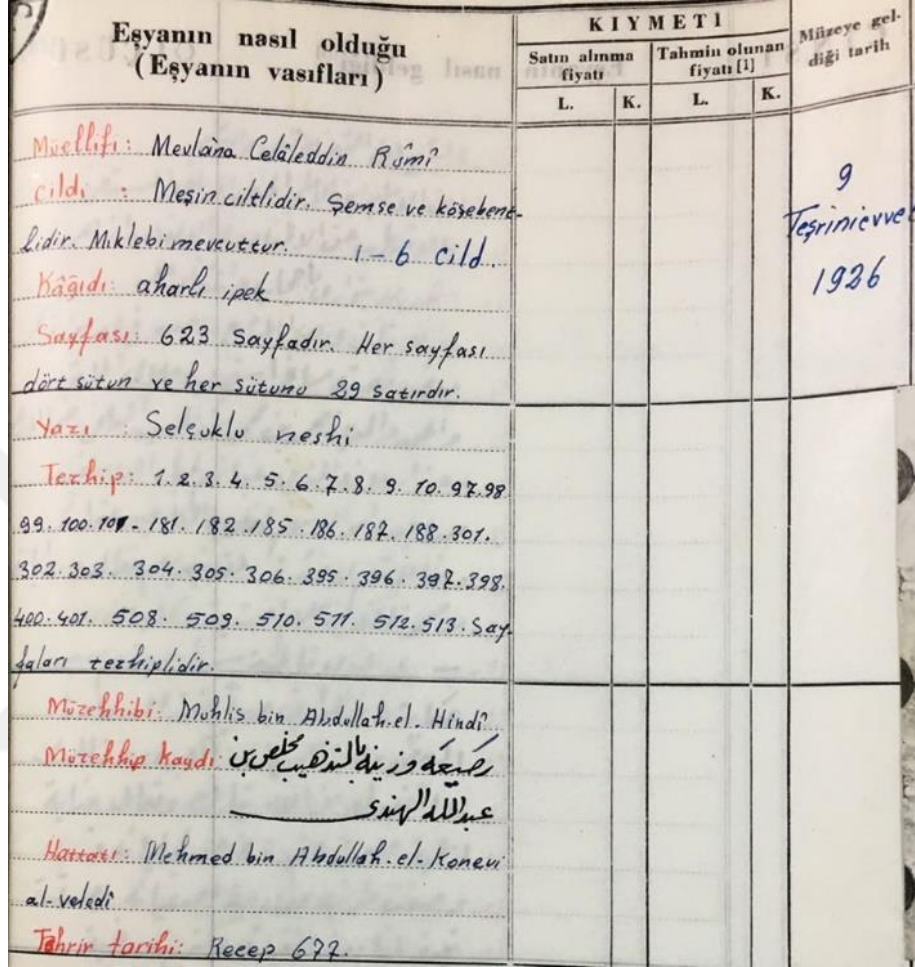 Eşyanın nasıl olduğu
(Eşyanın vasıfları)
KIYMETİ
Satın alınma fiyatı
Tahmin olunan fiyatı [1]
L.
K.
L.
K.
Müzeye geldiği tarih
Müellifi: Mevlâna Celâleddin Rûmî
Cildi : Meşin ciltlidir. Şemse ve köşebent-
lidir. Miklebi mevcuttur. 1-6 cild
Kâğıdı: aharlı ipek
Sayfası: 623 Sayfadır. Her sayfası
dört sütun ve her sütunu 29 satırdır.
Yazı : Selçuklu neshi
Tezhip: 1. 2. 3. 4. 5. 6. 7. 8. 9. 10. 97. 98
99. 100. 101 - 181. 182. 185. 186. 187. 188. 301.
302. 303. 304. 305. 306. 395. 396. 397. 398.
400. 401. 508. 509. 510. 511. 512. 513. Say-
faları tezhiplidir.
Müzehhibi: Muhlis bin Abdullah. el. Hindî
Müzehhip kaydı: وزينه بالتذهيب مخلص بن
عبدالله الهندى
Hattatı: Mehmed bin Abdullah. el-Konevi
al-veledî
Tahrir tarihi: Recep 677.
9
Teşrinievvel
1926